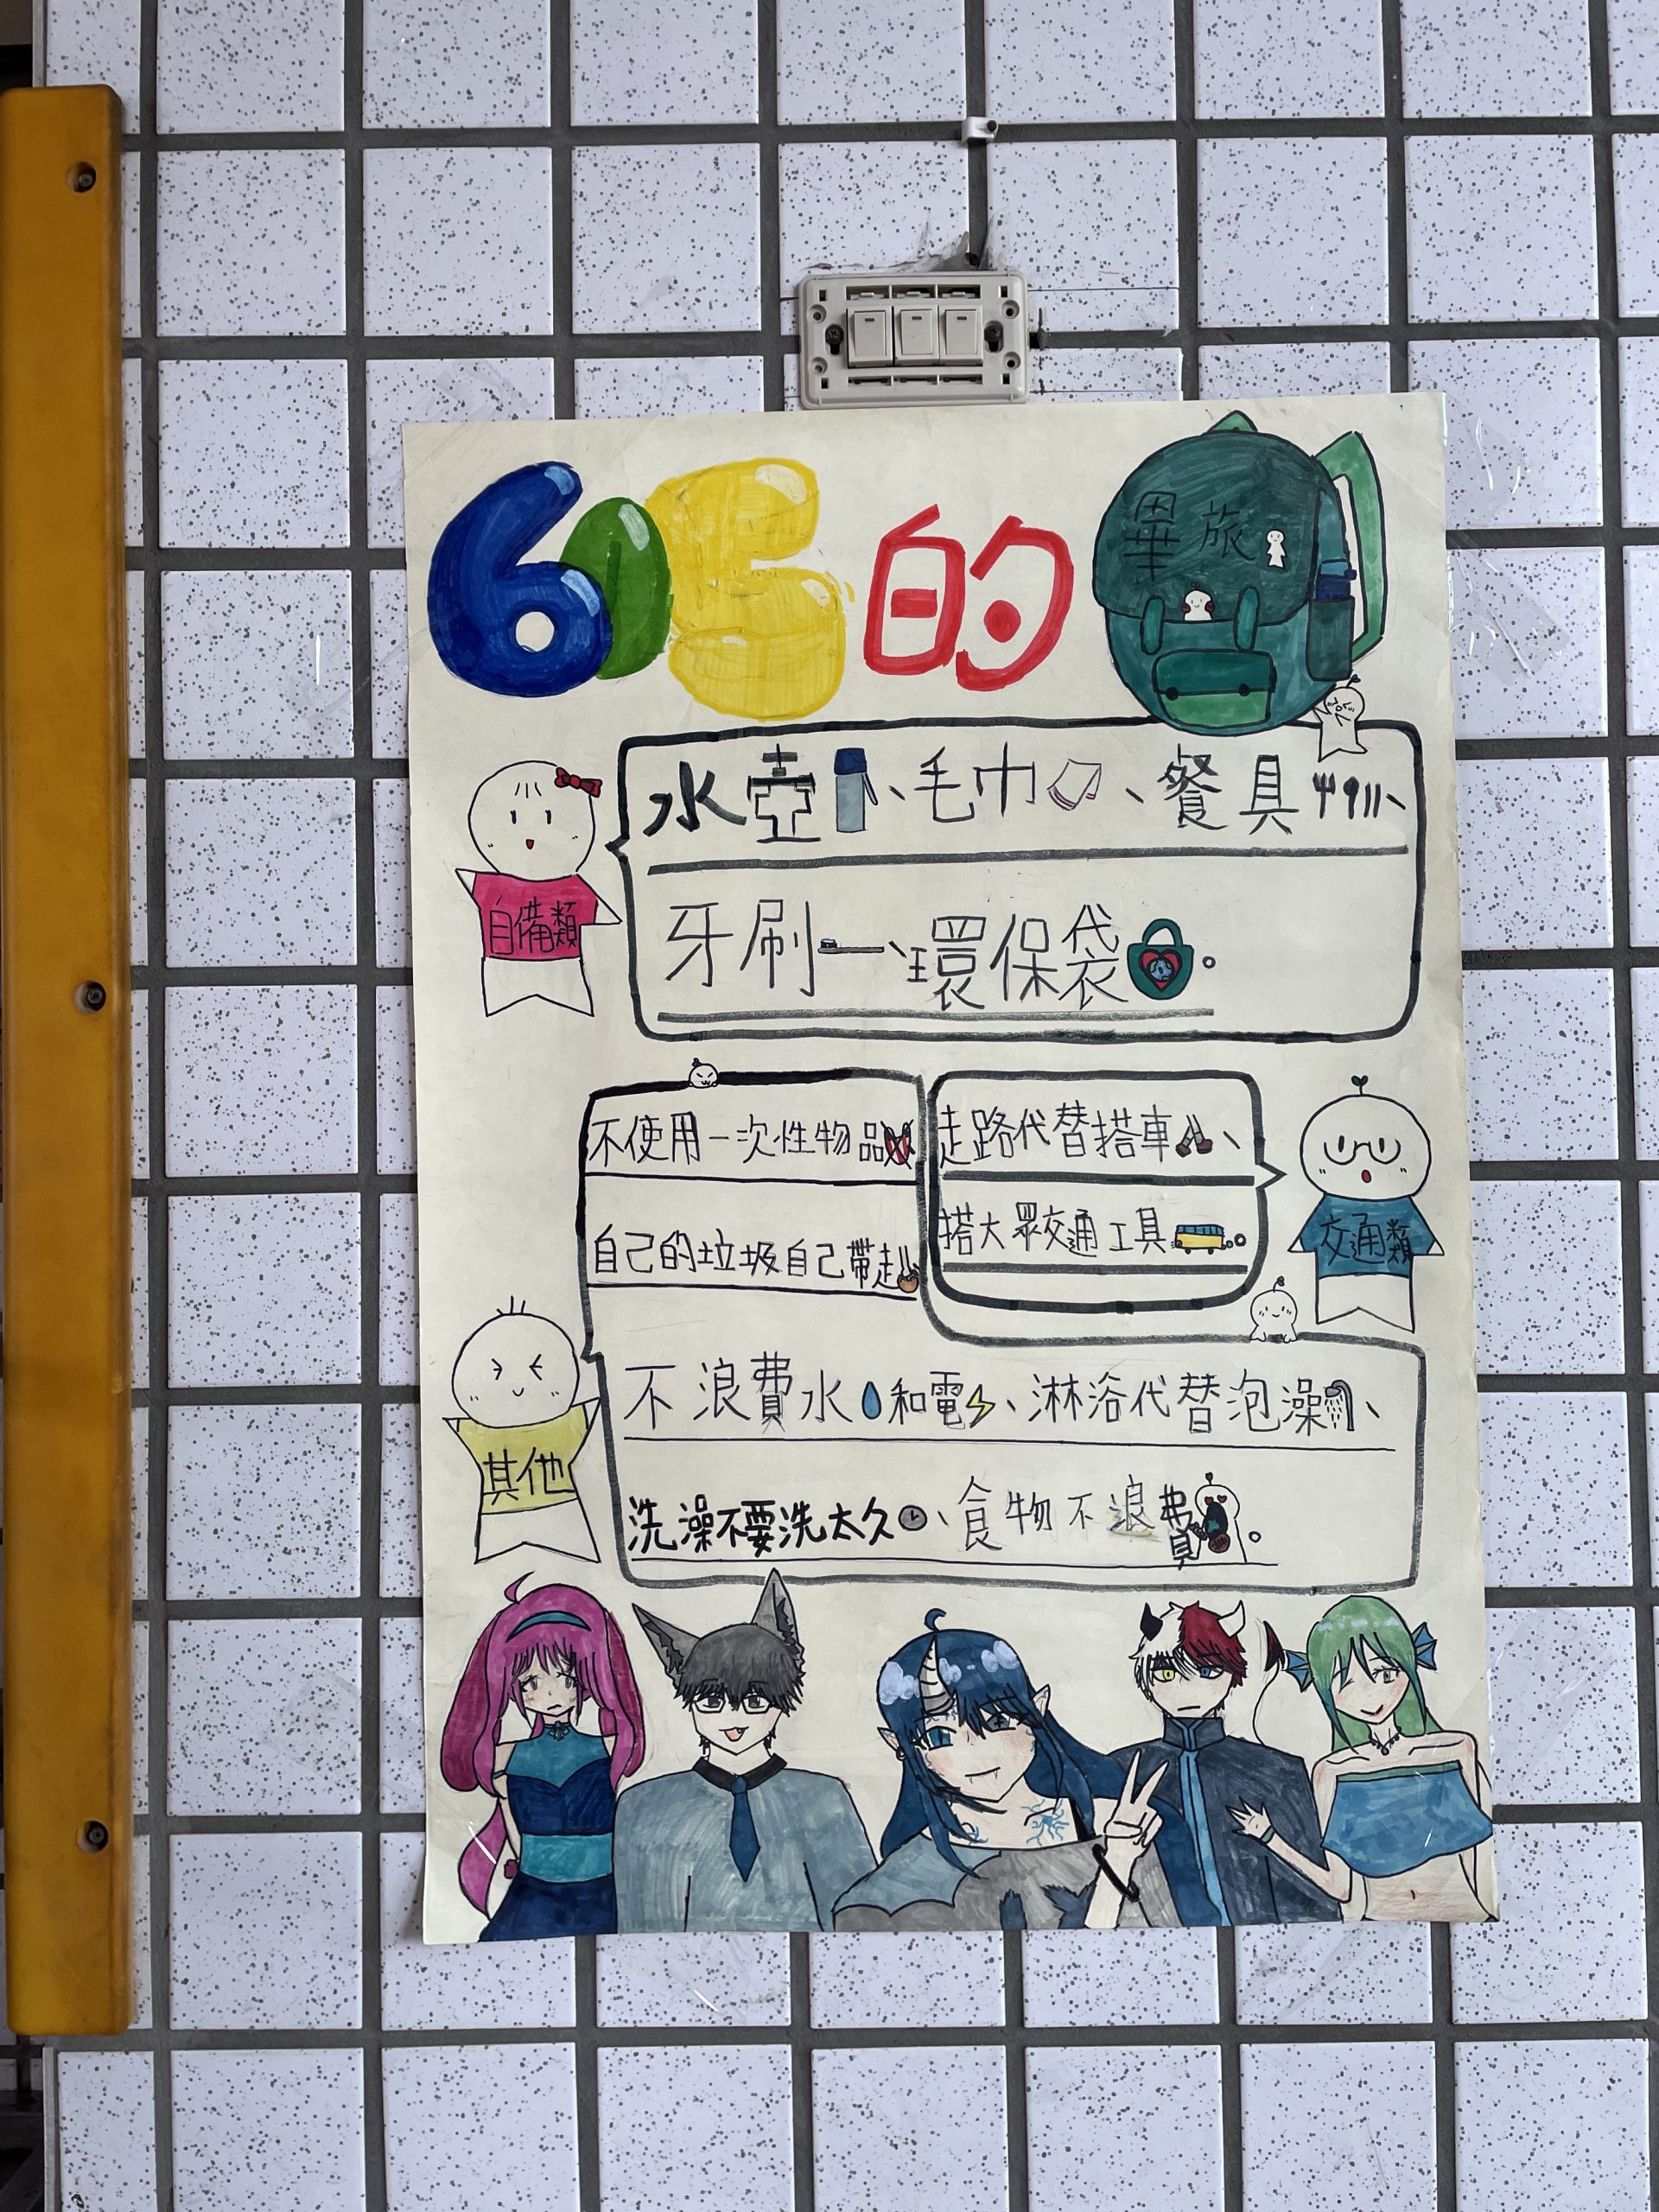 605的畢旅
自備類
水壺、毛巾、餐具、
牙刷、環保袋。
不使用一次性物品
自己的垃圾自己帶走
走路代替搭車、
搭大眾交通工具。
交通類
其他
不浪費水和電、淋浴代替泡澡、
洗澡不要洗太久、食物不浪費。